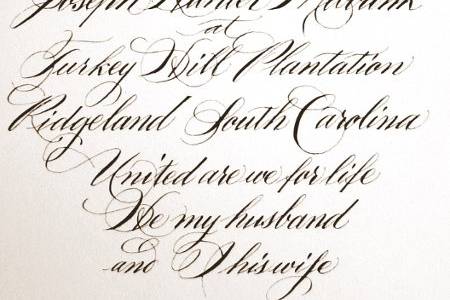 Joseph Hunter
at
Turkey Hill Plantation
Ridgeland South Carolina
United are we for life
He my husband
and I his wife